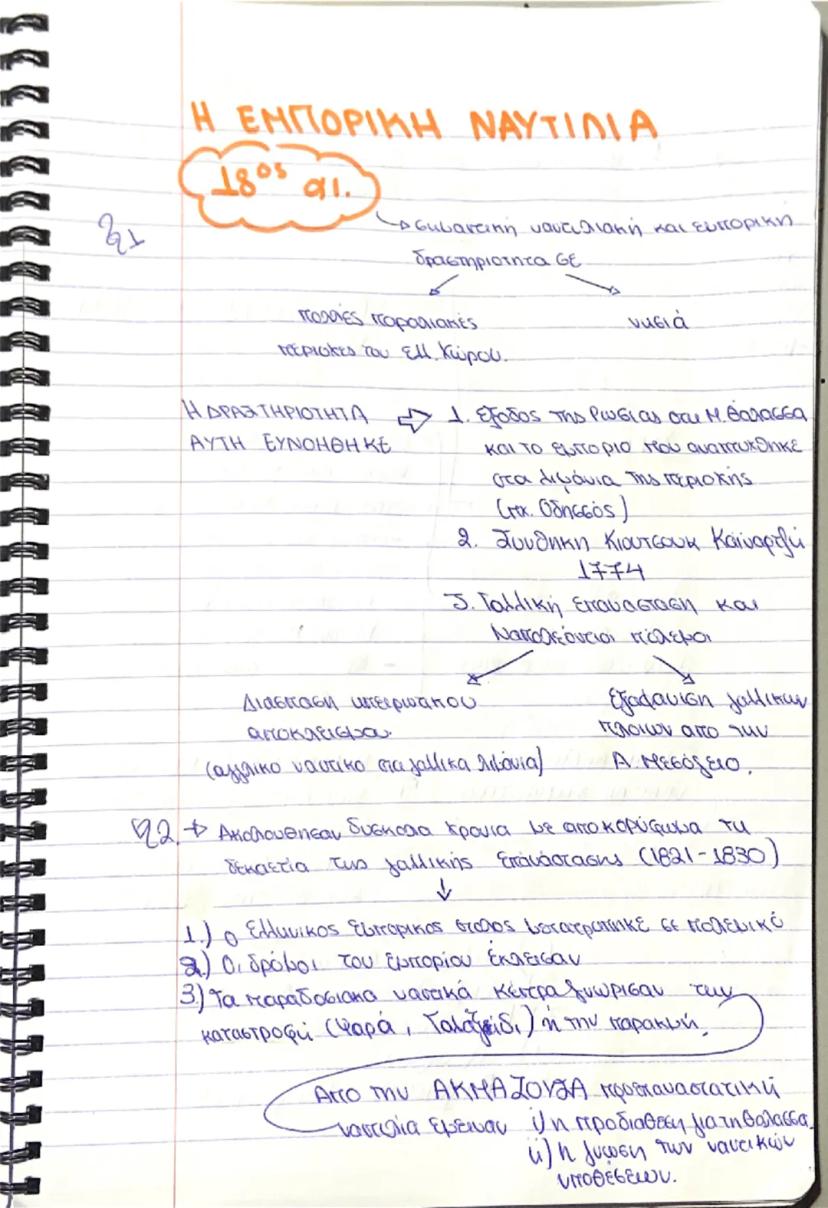 Η ΕΜΠΟΡΙΚΗ ΝΑΥΤΙΛΙΑ
18ος αι.
§1
σημαντική ναυτιλιακή και εμπορική
δραστηριότητα σε
πολλές παραλιακές
νησιά
περιοχές του Ελλ. Χώρου.
Η ΔΡΑΣΤΗΡΙΟΤΗΤΑ
ΑΥΤΗ ΕΥΝΟΗΘΗΚΕ
1. Εξοδος της Ρωσιας στη Μ. Θάλασσα
και το εμποριο που αναπτυχθηκε
στα λιμάνια της περιοχής
(πχ. Οδησσός)
2. Συνθηκη Κιουτσουκ Καϊναρτζή
1774
3. Γαλλική επανασταση και
Ναπολεόντειοι πόλεμοι
Διασπαση ηπειρωτικου
αποκλεισμου
(αγγλικο ναυτικο στα γαλλικα λιμάνια)
Εξαφανιση γαλλικων
πλοιων απο την
Α. Μεσόγειο.
§2. → Ακολουθησαν δυσκολα χρονια με αποκορύφωμα τη
δεκαετία της γαλλικής επανάστασης (1821-1830)
1.) ο Ελληνικος εμπορικος στολος μετατραπηκε σε πολεμικό
2.) Οι δρόμοι του εμπορίου έκλεισαν
3.) Τα παραδοσιακα ναυτικά κέντρα γνωρισαν την
καταστροφή (Ψαρά, Γαλαξείδι) ή την παρακμή.
Απο την ΑΚΜΑΖΟΥΣΑ προεπαναστατική
ναυτιλια εμειναν i) η προδιαθεση για τη θαλασσα
ii) η γνωση των ναυτικών
υποθέσεων.